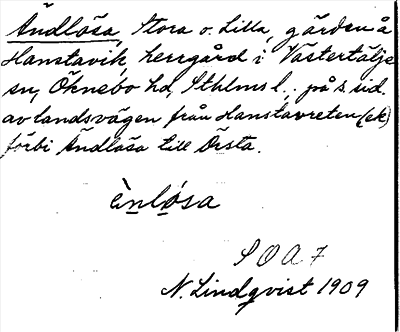 Ändlösa, Stora o. Lilla, gärden å
Hanstavik, herrgård i Västertälje
sn, Öknebo hd, Sthlms l., på s. sid.
av landsvägen från Hanstavreten (ek)
förbi Ändlösa till Örsta.
ènlósa
S O A 7
N. Lindqvist 1909